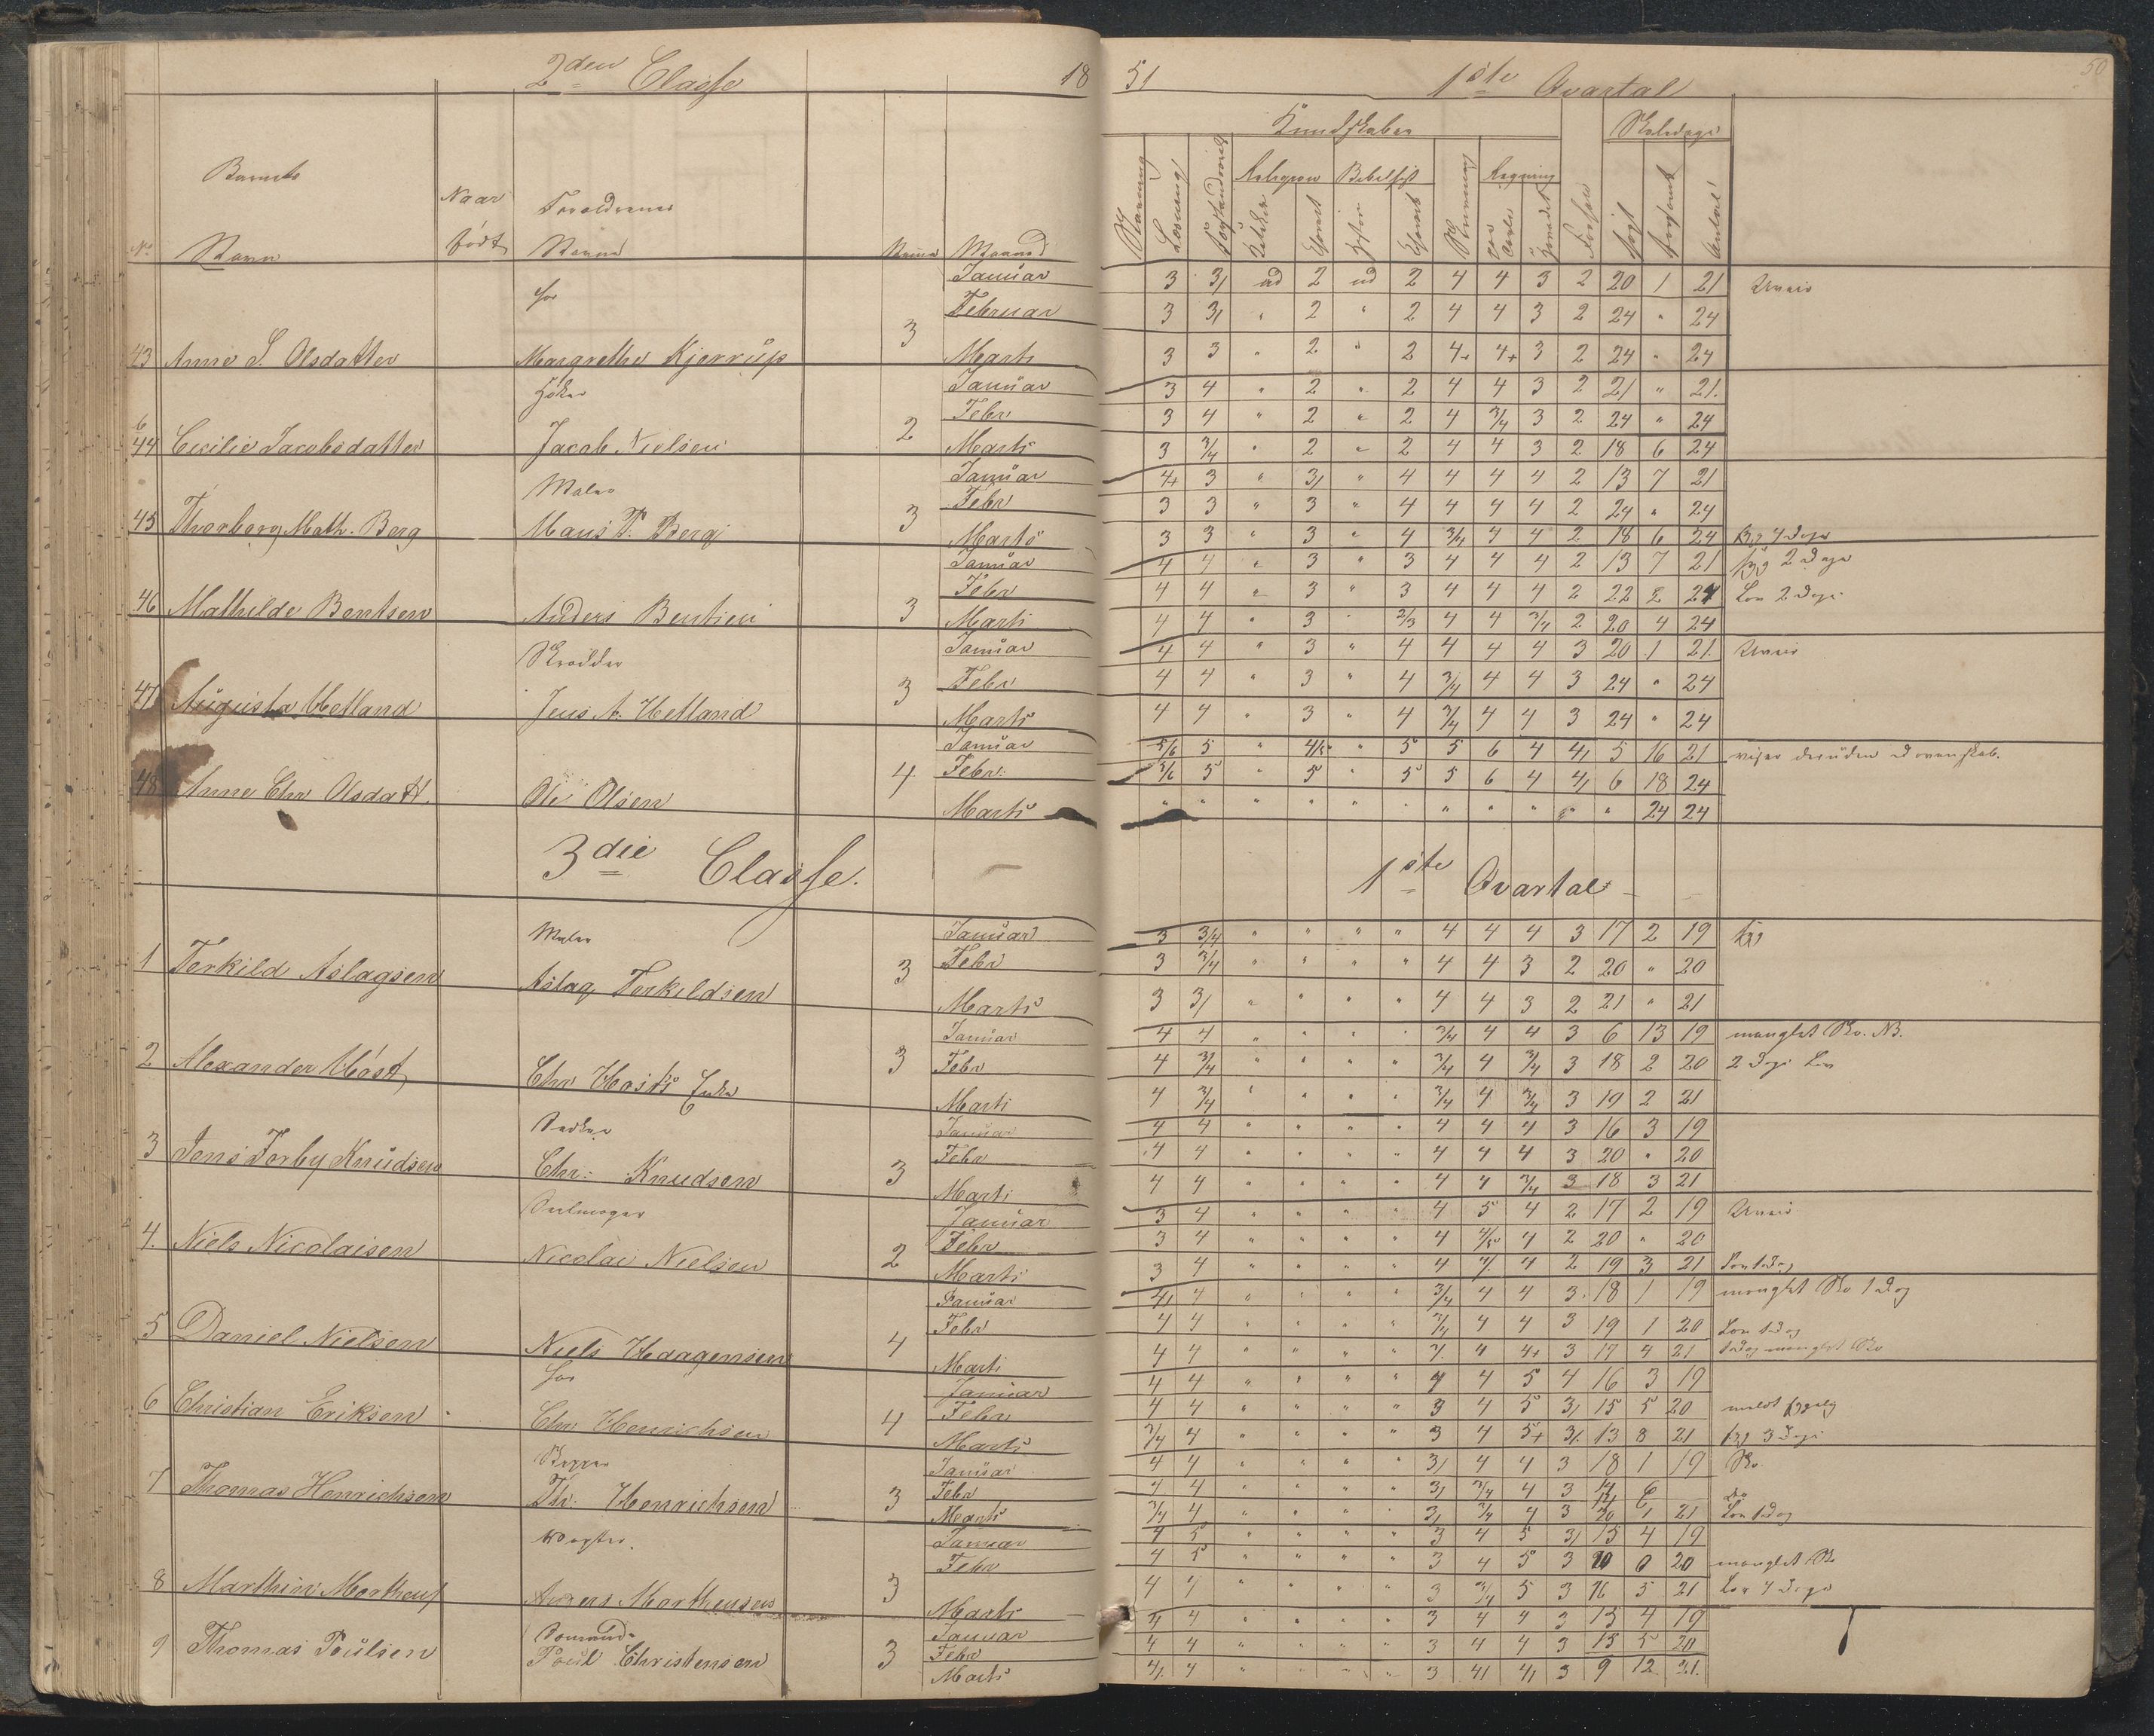 2den Classe 18
51 1ste Qvartal
50
Kundskaber Skoledage
Barnets
Naar
Religion Bibelhist Regning
No Navn født Navn Maaned
Januar 3 3/ ud 2 ud 2 4 4 3 2 20 1 21
Februar 3 3/ " 2 " 2 4 4 3 2 24 " 24
43 Anne S. Olsdatter Margrethe Kjerrup 3 Marts 3 3 " 2 " 2 4+ 4+ 3 2 24 " 24
Januar 3 4 " 2 " 2 4 4 3 2 21 " 21.
Febr 3 4 " 2 " 2 4 3/4 3 2 24 " 24
44 Cecilie Jacobsdatter Jacob Nielsen 2 Marts 3 3/4 " 2 " 2 4 4 3 2 18 6 24
Maler Januar 4+ 3 " 3/ " 4 4 4 4 2 13 7 21
Febr 3 3 " 3 " 4 4 4 4 2 24 " 24
45 Thorborg Math. Berg Maus P. Berg 3 Marts 3 3 " 3 " 4 3/4 4 4 2 18 6 24 syg 4 Dage
Januar 4 4 " 3 " 3 4 4 4 2 13 7 21 syg 2 Dage
Febr 4 4 " 3 " 3 4 4 4 2 22 2 24 Lov 2 Dage
46 Mathilde Bentsen Anders Bentsen 3 Marts 4 4 " 3 " 2/3 4 4 3/4 2 20 4 24
Skrædder Januar 4 4 " 3 " 4 4 4 4 3 20 1 21.
Febr 4 4 " 3 " 4 3/4 4 4 3 24 " 24
47 Augusta Hetland Jens A. Hetland 3 Marts 4 4 " 3 " 4 3/4 4 4 3 24 " 24
Januar 5/6 5 " 4/5 " 5 5 6 4 4/ 5 16 21 viser desuden dovenskab.
Febr: 5/6 5 " 5 " 5 5 6 4 4/ 6 18 24
48 Anne Chr Olsdatt. Ole Olsen 4 Marts " " " " " " " " " " " 24 24
3die Classe. 1ste Qvartal
Maler Januar 3 3/4 " " " " 4 4 4 3 17 2 19 syg
Febr 3 3/4 " " " " 4 4 3 2 20 " 20
1 Terkild Aslagsen Aslag Terkildsen 3 Marts 3 3/ " " " " 4 4 3 2 21 " 21
Januar 4 4 " " " " 3/4 4 4 3 6 13 19 manglet Sko. NB.
Febr 4 3/4 " " " " 3/4 4 3/4 3 18 2 20 2 Dage Lov
2 Alexander Høst Chr Høsts Enke 3 Marts 4 3/4 " " " " 3/4 4 3/4 3 19 2 21
Januar 4 4 " " " " 4 4 4 3 16 3 19
Febr 4 4 " " " " 4 4 4 3 20 " 20
3 Jens Torby Knudsen Chr: Knudsen 3 Marts 4 4 " " " " 4 4 3/4 3 18 3 21
Seilmager Januar 3 4 " " " " 4 5 4 2 17 2 19
Febr 3 4 " " " " 4 4/5 4 2 20 " 20
4. Niels Nicolaisen Nicolai Nielsen 2 Marts 3 4 " " " " 4 4 4 2 19 3 21 Lov 1 dag
Januar 4/ 4 " " " " 3/4 4 4 3 18 1 19 manglet Sko 1 dag
Febr 4 4 " " " " 3/4 4 4 3 19 1 20 Lov 1 dag
5 Daniel Nielsen Niels Haagensen 4 Marts 4 4 " " " " 4 4+ 3 17 4 21 1 dag manglet Sko
Januar 4 4 " " " " 4 4 5 4 16 3 19
Febr 4 4 " " " " 3 4 5 3/ 15 5 20 meldt sygelig
6 Christian Eriksen Chr Henrichsen 4 Marts 3/4 4 " " " " 3 4 5+ 3/ 13 8 21 syg 3 Dage
Januar 4 4 " " " " 3/ 4 4 3 18 1 19 Sko
Febr 4 4 " " " " 3/ 3/4 4 3 14 6
7 Thomas Henrichsen Th. Henrichsen 3 Marts 3/4 4 " " " " 3/ 3/4 4 3 20 1 21 Lov 1 dag
Januar 4 5 " " " " 3 4 5 3/ 15 4 19
Febr 4 5 " " " " 3 4 5 3 20 0 20 manglet Sko
8 Marthin Marthens Anders Marthensen 3 Marts 4 4 " " " " 3 3/4 5 3 16 5 21 Lov 4 Dage
Januar 4 4 " " " " 3 4 4 3 15 4 19
Febr 4 4 " " " " 3 4 4 3 15 5 20
9 Thomas Poulsen Poul Christensen 3 Marts 4/ 4 " " " " 3 4/ 4/ 3 9 12 21.